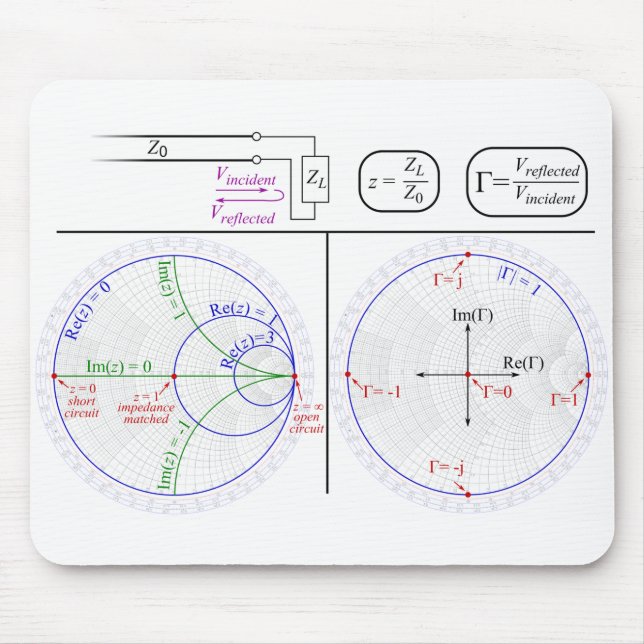 Z₀
V_incident
V_reflected
Z_L
z = Z_L/Z₀
Γ=V_reflected/V_incident
Re(z) = 0
Im(z) = 1
Re(z) = 1
Re(z)=3
Im(z) = 0
z = 0
short
circuit
z = 1
impedance
matched
z = ∞
open
circuit
Im(z) = -1
|Γ| = 1
Γ= j
Im(Γ)
Re(Γ)
Γ= -1
Γ=0
Γ=1
Γ= -j